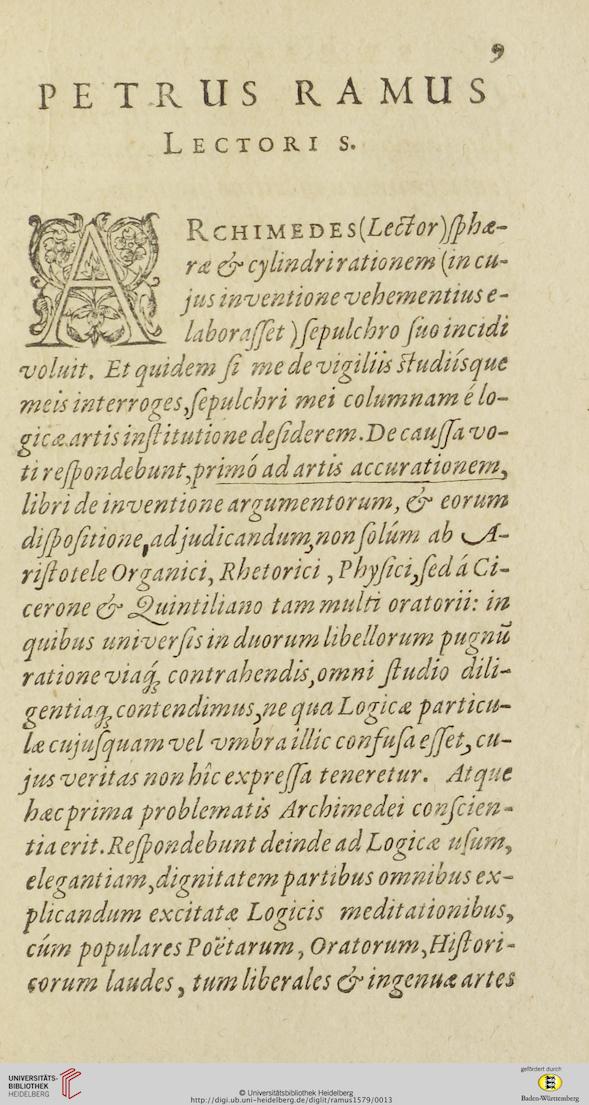 9
PETRUS RAMUS
LECTORI S.
ARCHIMEDES (Lector) sphæ-
ræ & cylindri rationem (in cu-
jus inventione vehementius e-
laborasset) sepulchro suo incidi
voluit. Et quidem si me de vigiliis studiísque
meis interroges, sepulchri mei columnam è lo-
gicæ artis institutione desiderem. De caussa vo-
ti respondebunt, primó ad artis accurationem,
libri de inventione argumentorum, & eorum
dispositione, ad judicandum, non solúm ab A-
ristotele Organici, Rhetorici, Physici, sed á Ci-
cerone & Quintiliano tam multi oratorii: in
quibus universis in duorum libellorum pugnũ
ratione viaq́; contrahendis, omni studio dili-
gentiaq; contendimus, ne qua Logicæ particu-
læ cujusquam vel vmbra illic confusa esset, cu-
jus veritas non hîc expressa teneretur. Atque
hæc prima problematis Archimedei conscien-
tia erit. Respondebunt deinde ad Logicæ usum,
elegantiam, dignitatem partibus omnibus ex-
plicandum excitatæ Logicis meditationibus,
cúm populares Poëtarum, Oratorum, Histori-
corum laudes, tum liberales & ingenuæ artes
UNIVERSITÄTS-
BIBLIOTHEK
HEIDELBERG
© Universitätsbibliothek Heidelberg
http://digi.ub.uni-heidelberg.de/diglit/ramus1579/0013
gefördert durch
Baden-Württemberg